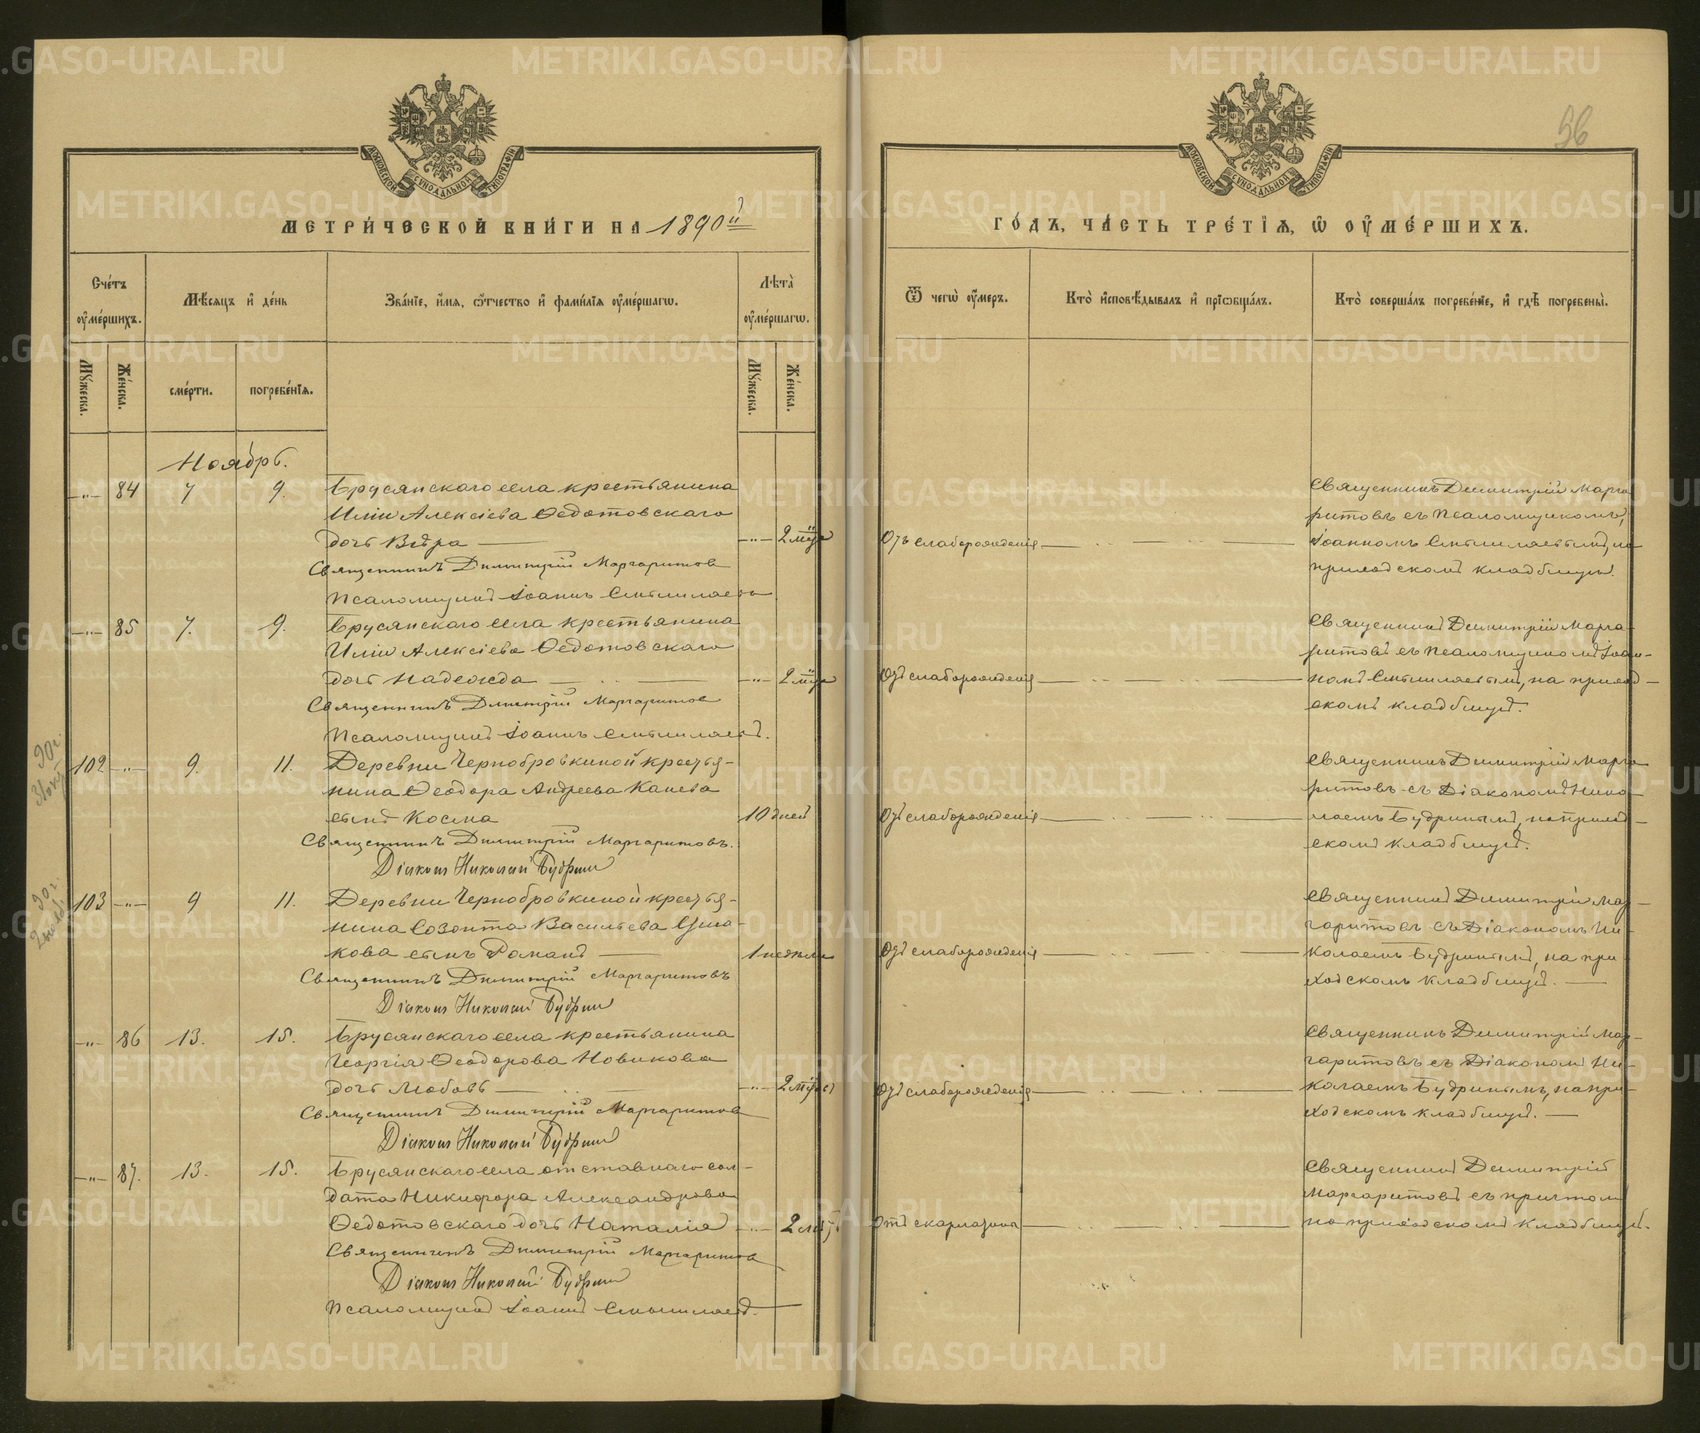 МЕТРИ́ЧЕСКОЙ КНИ́ГИ НА 1890й
Сче́тъ ᲂу҆ме́ршихъ.
Мѣ́сяцъ и҆ де́нь
Зва́нїе, и҆́мя, ѻ҆́тчество и҆ фами́лїя ᲂу҆ме́ршагѡ.
Лѣ́та ᲂу҆ме́ршагѡ.
Мꙋ́жеска.
Же́нска.
сме́рти.
погребе́нїя.
Мꙋ́жеска.
Же́нска.
Ноябрь.
—"— 84 7 9. Брусянскаго села крестьянина
Иліи Алексіева Ѳедотовскаго
дочь Вѣра — —"— 2 мца
Священникъ Димитрій Маргаритовъ
Псаломщикъ Іоаннъ
—"— 85 7. 9. Брусянскаго села крестьянина
Иліи Алексіева Ѳедотовскаго
дочь Надежда — —"— 2 мца
Священникъ Димитрій Маргаритовъ
Псаломщикъ Іоаннъ
102 —"— 9. 11. Деревни Чернобровкиной крестья-
нина Ѳеодора Андреева Канева
сынъ Косма 10 дней
Священникъ Димитрій Маргаритовъ.
Діаконъ Николай Будринъ
103 —"— 9 11. Деревни Чернобровкиной крестья-
нина Созонта Васильева Уша-
кова сынъ Романъ — 1 недели
Священникъ Димитрій Маргаритовъ
Діаконъ Николай Будринъ
—"— 86 13. 15. Брусянскаго села крестьянина
Георгія Ѳеодорова Новикова
дочь Любовь — —"— 2 мца
Священникъ Димитрій Маргаритовъ
Діаконъ Николай Будринъ
—"— 87. 13. 15. Брусянскаго села отставнаго сол-
дата Никифора Александрова
Ѳедотовскаго дочь Наталія —"— 2
Священникъ Димитрій Маргаритовъ
Діаконъ Николай Будринъ
Псаломщикъ Іоаннъ
56
ГО́ДЪ, ЧА́СТЬ ТРЕ́ТЇЯ, Ѡ҆ ОУ҆МЕ́РШИХЪ.
Ѿ чегѡ̀ ᲂу҆́меръ.
Кто̀ и҆сповѣ́дывалъ и҆ прїѻбща́лъ.
Кто̀ соверша́лъ погребе́нїе, и҆ гдѣ̀ погребены̀.
Отъ слаборожденія — Священникъ Димитрій Марга
ритовъ съ Псаломщикомъ
Іоанномъ на
приходскомъ кладбищѣ.
Отъ слаборожденія — Священникъ Димитрій Марга-
ритовъ съ Псаломщикомъ Іоан-
номъ на приход-
скомъ кладбищѣ.
Отъ слаборожденія — Священникъ Димитрій Марга
ритовъ съ Діакономъ Нико-
лаемъ Будринымъ, на приход-
скомъ кладбищѣ.
Отъ слаборожденія — Священникъ Димитрій Мар-
гаритовъ съ Діакономъ Ни-
колаемъ Будринымъ, на при
ходскомъ кладбищѣ. —
Отъ слаборожденія — Священникъ Димитрій Мар-
гаритовъ съ Діакономъ Ни-
колаемъ Будринымъ, на при-
ходскомъ кладбищѣ. —
Отъ скарлатины — Священникъ Димитрій
Маргаритовъ съ причтомъ
на приходскомъ кладбищѣ.
METRIKI.GASO-URAL.RU